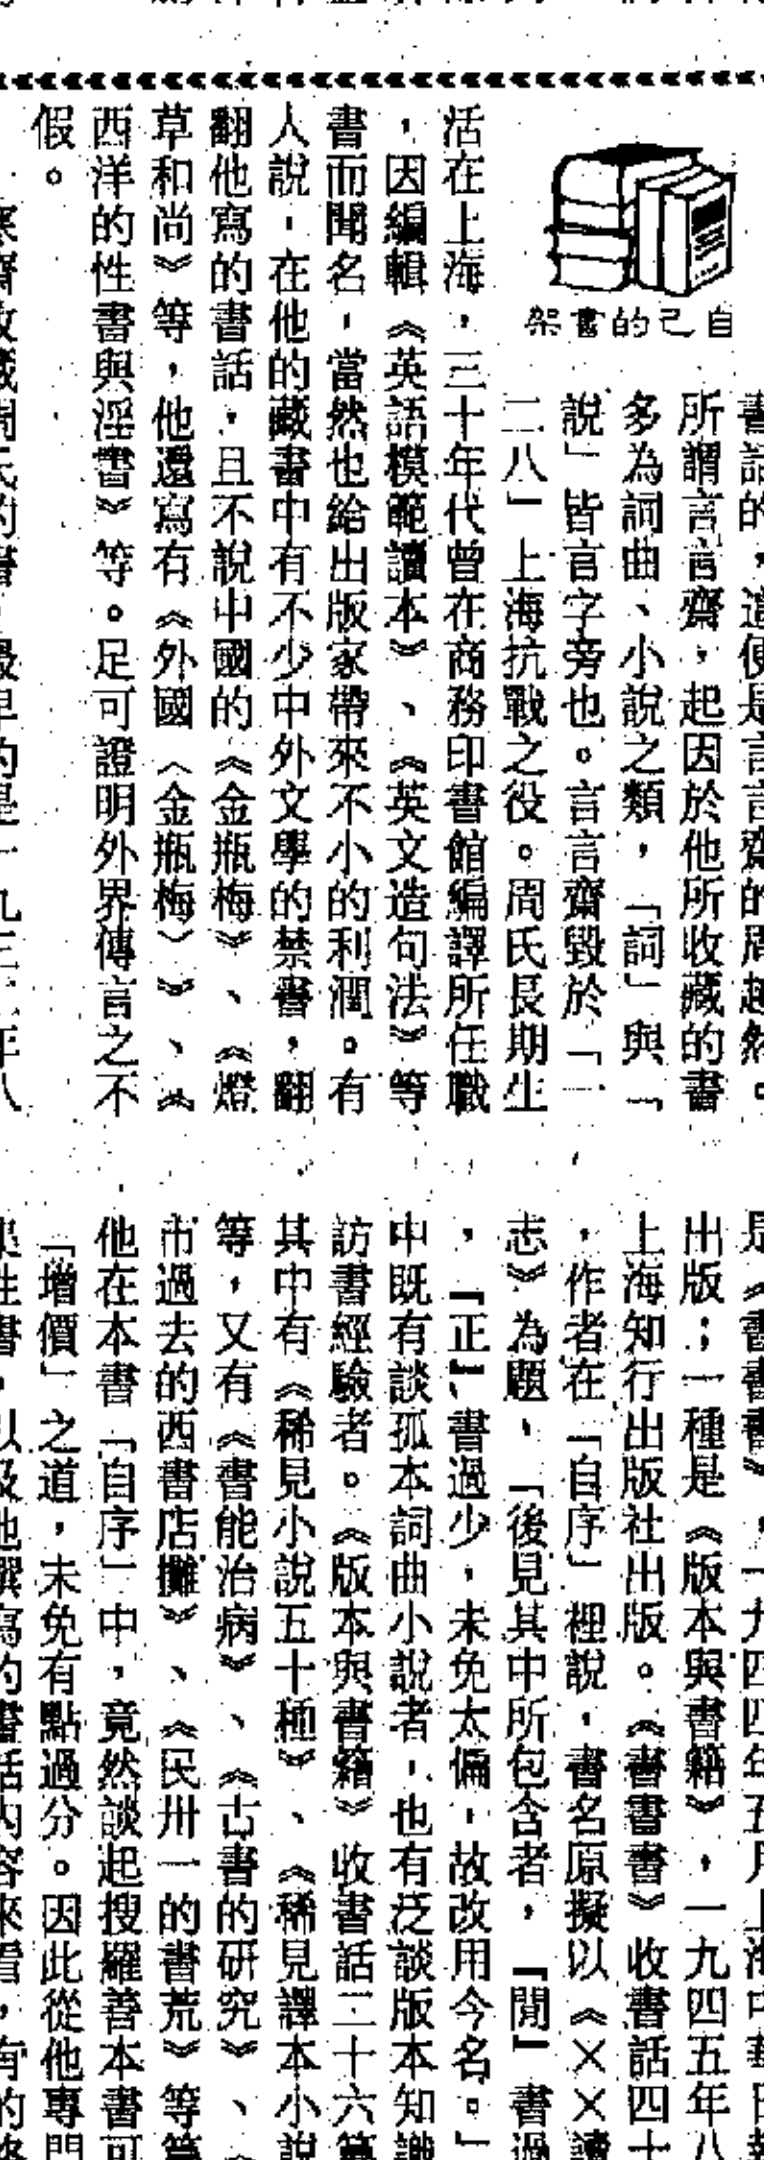 自己的書架
書話的，這便是言言齋的周越然。
所謂言言齋，起因於他所收藏的書
多為詞曲、小說之類，「詞」與「
說」皆言字旁也。言言齋毀於「一
二八」上海抗戰之役。周氏長期生
活在上海，三十年代曾在商務印書館編譯所任職
，因編輯《英語模範讀本》、《英文造句法》等
書而聞名，當然也給出版家帶來不小的利潤。有
人說，在他的藏書中有不少中外文學的禁書，翻
翻他寫的書話，且不說中國的《金瓶梅》、《燈
草和尚》等，他還寫有《外國〈金瓶梅〉》、《
西洋的性書與淫書》等。足可證明外界傳言之不
假。
寒齋收藏周氏的書，最早的是一九三二年八
是《書書書》，一九四四年五月上海中華日報
出版；一種是《版本與書籍》，一九四五年八
上海知行出版社出版。《書書書》收書話四十
，作者在「自序」裡說，書名原擬以《××讀
志》為題，「後見其中所包含者，『閒』書過
，『正』書過少，未免太偏，故改用今名。」
中既有談孤本詞曲小說者，也有泛談版本知識
訪書經驗者。《版本與書籍》收書話二十六篇
其中有《稀見小說五十種》、《稀見譯本小說
等，又有《書能治病》、《古書的研究》、《
市過去的西書店攤》、《民卅一的書荒》等篇
他在本書「自序」中，竟然談起搜羅善本書可
「增價」之道，未免有點過分。因此從他專門
集性書，以及他撰寫的書話內容來看，有的格